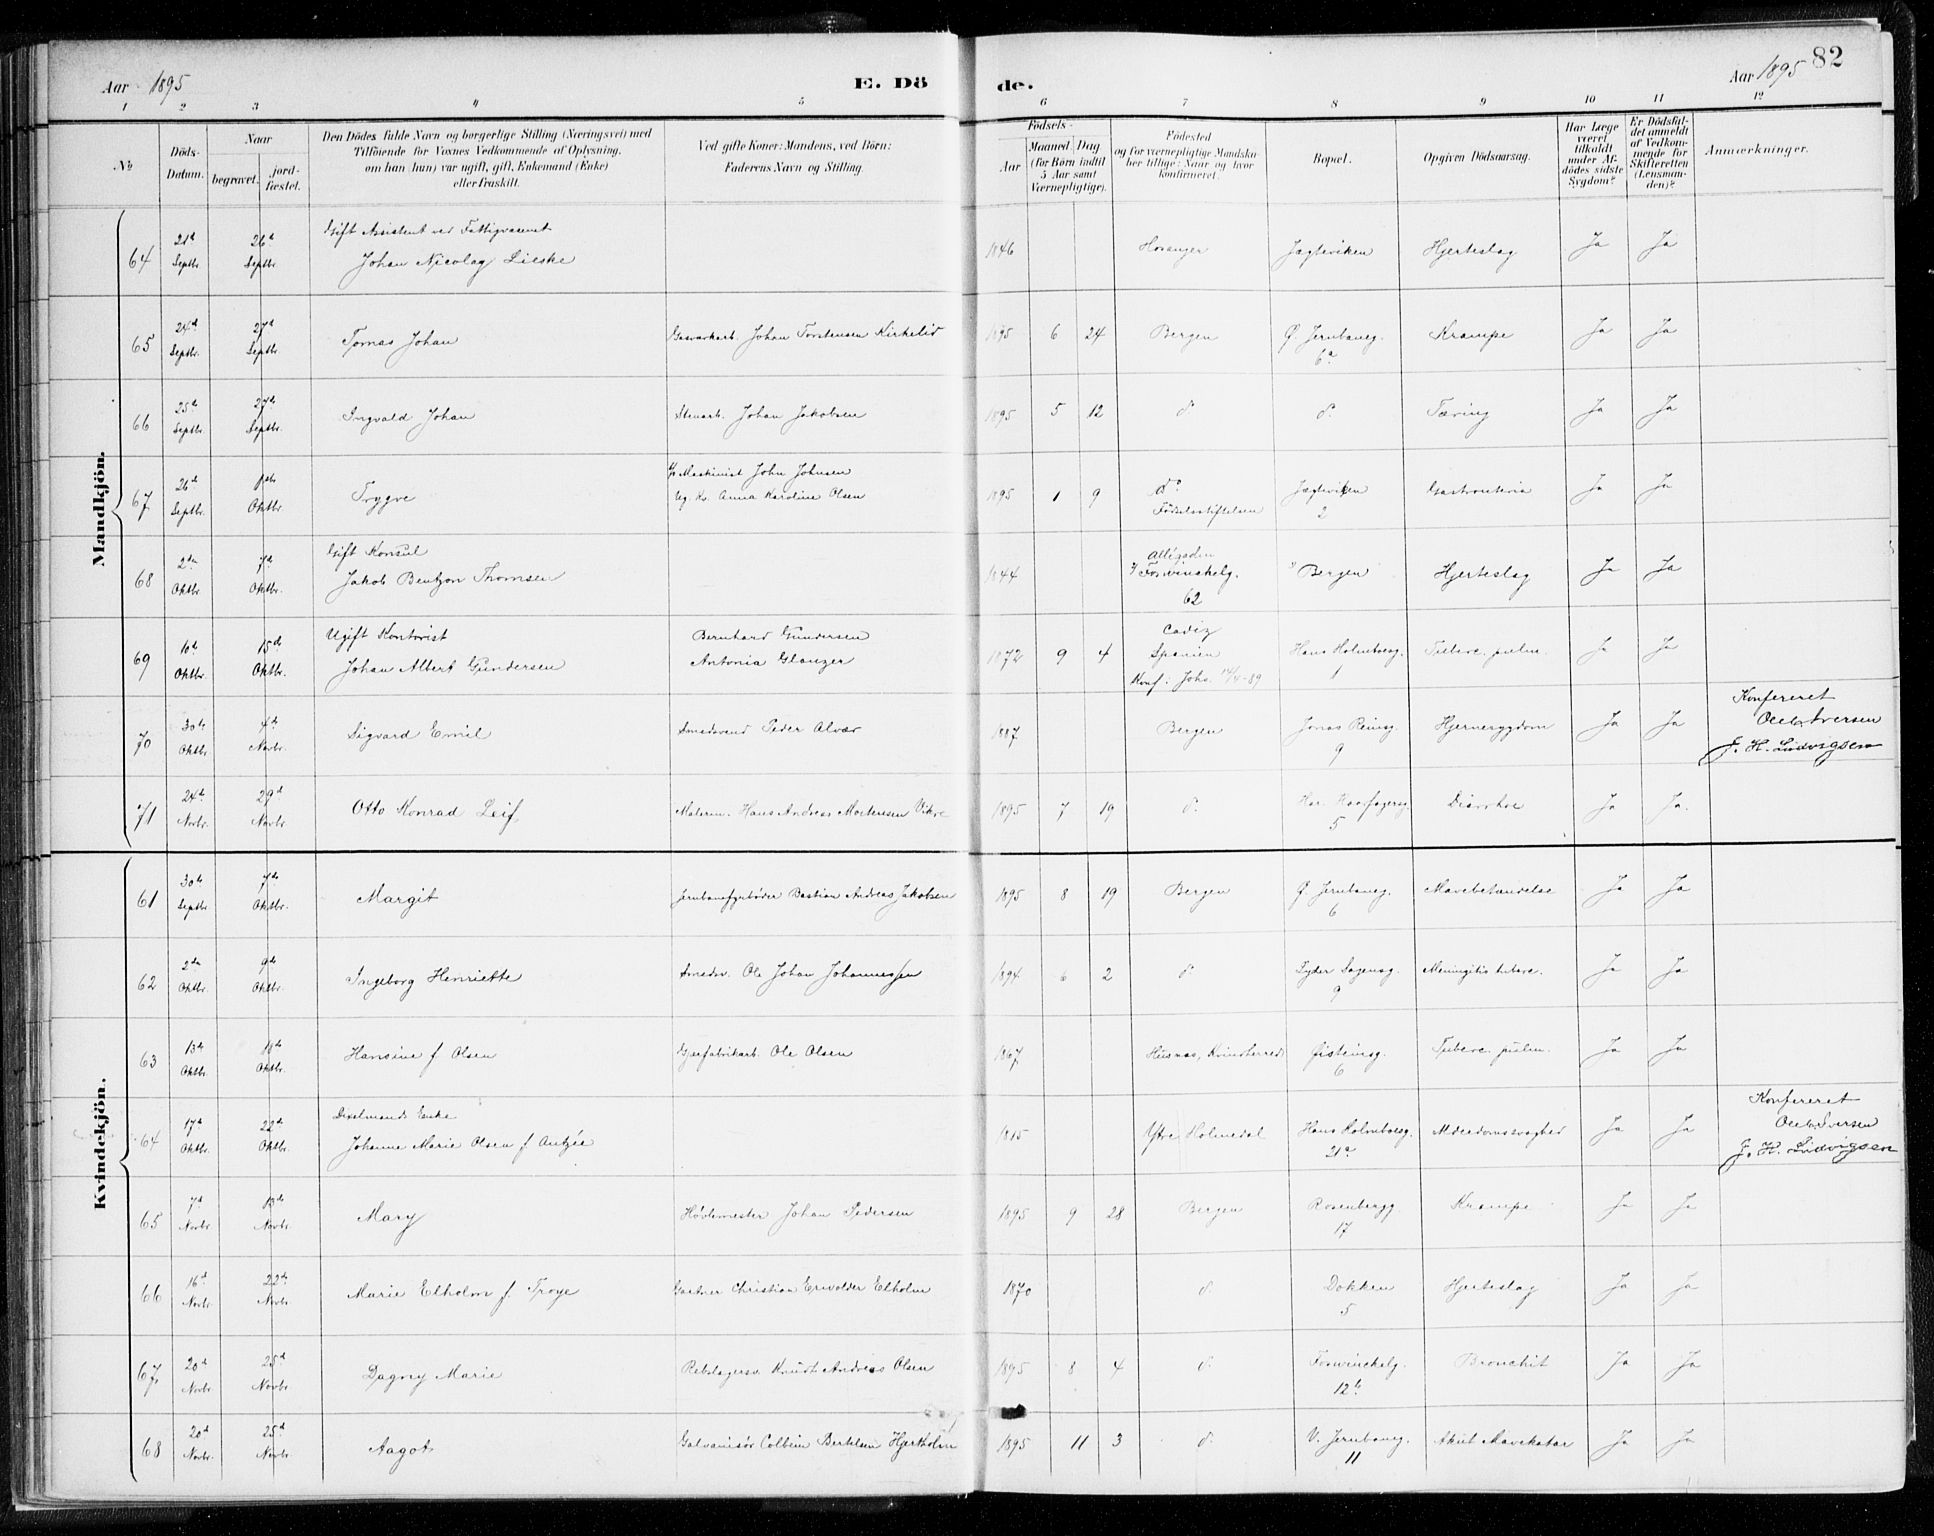 Aar 1895
E. Dö
de.
Aar 1895 82
1 2 3 4 5 6 7 8 9 10 11 12
No
Döds-Datum.
Naar begravet. jordfæstet.
Den Dödes fulde Navn og borgerlige Stilling (Næringsvei) med Tilföiende for Voxnes Vedkommende af Oplysning, om han (hun) var ugift, gift, Enkemand (Enke) eller fraskilt.
Ved gifte Koner: Mandens, ved Börn: Faderens Navn og Stilling.
Födsels-
Aar
Maaned Dag (for Börn indtil 5 Aar samt Værnepligtige).
Födested og for værnepligtige Mandskaber tillige: Naar og hvor konfirmeret.
Bopæl.
Opgiven Dödsaarsag.
Har Læge været tilkaldt under Afdödes sidste Sygdom?
Er Dödsfaldet anmeldt af Vedkommende for Skifteretten (Lensmanden)?
Anmærkninger.
Mandkjön.
64 21d Septbr. 26d Septbr. Gift Assistent ved Fattigvæsenet Johan Nicolay Lieske 1846 Hosanger Jægteviken Hjerteslag Ja Ja
65 24d Septbr. 27d Septbr. Tomas Johan Gasverkarb. Johan Torstensen Kirkelid 1895 6 24 Bergen Ø. Jernbaneg. 6a Krampe Ja Ja
66 25d Septbr. 27d Septbr. Ingvald Johan Stenarb. Johan Jakobsen 1895 5 12 do do Tæring Ja Ja
67 26d Septbr. Oktbr. Trygve Maskinist John Johnsen Ug. Kv. Anna Karoline Olsen 1895 1 9 do Fødselsstiftelsen Jægteviken 2 Gastroenteria Ja Ja
68 2den Oktbr. 7d Oktbr. Gift Konsul Jakob Bentzon Thomsen 1844 Allégaden Fosvinckelg. 62 Bergen Hjerteslag Ja Ja
69 10d Oktbr. 15d Oktbr. Ugift Kontorist Johan Albert Gundersen Bernhard Gundersen Antonia Glauzer 1872 9 4 Cadiz Spanien Konf: Johs. 14/4-89 Hans Holmboesg. 1 Tuberc. pulm. Ja Ja
70 30te Oktbr. 4de Novbr. Sigvard Emil Smedsvend Peder Alvær 1887 Bergen Jonas Reinsg. 9 Hjernesygdom Ja Ja Konfereret Iversen J. H. Ludvigsen
71 24d Novbr. 29d Novbr. Otto Konrad Leif Malerm. Hans Andreas Mortensen Vikre 1895 7 19 do Har. Haarfagersg. 5 Diarrhoe Ja Ja.
Kvindekjön.
61 30te Septbr 7de Oktbr. Margit Jernbanefyrbøder Bastian Andreas Jakobsen 1895 8 19 Bergen Ø. Jernbaneg. 6 Mavebetændelse Ja Ja
62 2den Oktbr. 9de Oktbr. Ingeborg Henriette Smedsv. Ole Johan Johannessen 1894 6 2 do Lyder Sagensg. 9 Meningitis tuberc. Ja Ja
63 13de Oktbr. 18de Oktbr. Hansine f. Olsen Gjærfabrikarb. Ole Olsen 1867 Husnæs, Kvindherred Øisteinsg. 6 Tuberc. pulm. Ja Ja
64 17d Oktbr. 22de Oktbr. Dixelmands Enke Johanne Marie Olsen f. Antzée 1815 Ytre Holmedal Hans Holmboesg. 21a Alderdomssvaghed Ja Ja Konfereret Iversen J. H. Ludvigsen
65 7d Novbr. 13de Novbr. Mary Hovmester Johan Pedersen 1895 9 28 Bergen Rosenbergg. 17 Krampe Ja Ja
66 16d Novbr. 22de Novbr. Marie Elholm f. Troye Gartner Christian Elholm 1870 do Dokken 5 Hjerteslag Ja Ja
67 20d Novbr. 25d Novbr. Dagny Marie Rebslagersv. Knudt Andreas Olsen 1895 8 4 do Fosvinckelg. 12b Bronchit Ja Ja
68 20d Novbr. 25d Novbr. Aagot Galvanisør Colbein Bertelsen Hjortholm 1895 11 3 do V. Jernbaneg. 11 Akut Mavekatar Ja Ja